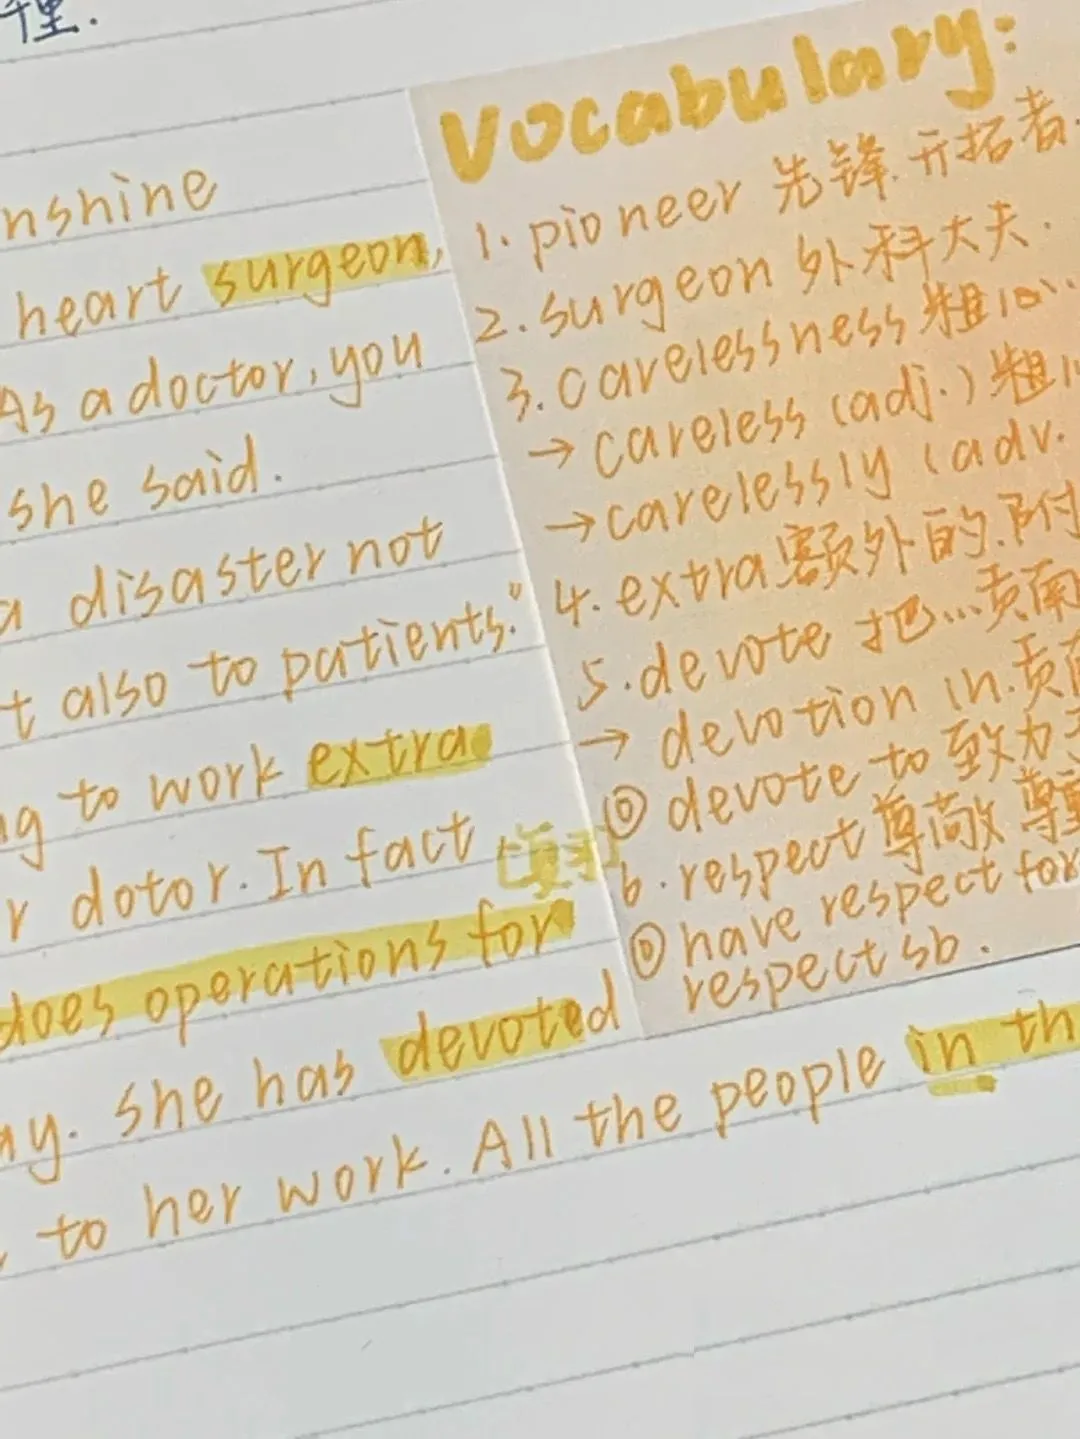 nshine
heart surgeon,
As a doctor, you
she said.
a disaster not
t also to patients."
ng to work extra
r dotor. In fact
does operations for
ay. she has devoted
to her work. All the people in th
Vocabulary:
1. pioneer 先锋. 开拓者.
2. surgeon 外科大夫.
3. carelessness 粗心..
→ careless (adj.) 粗心
→ carelessly (adv.
4. extra 额外的. 附
5. devote 把...贡献
→ devotion in. 贡献
① devote to 致力于
6. respect 尊敬 尊重
① have respect for
respect sb.